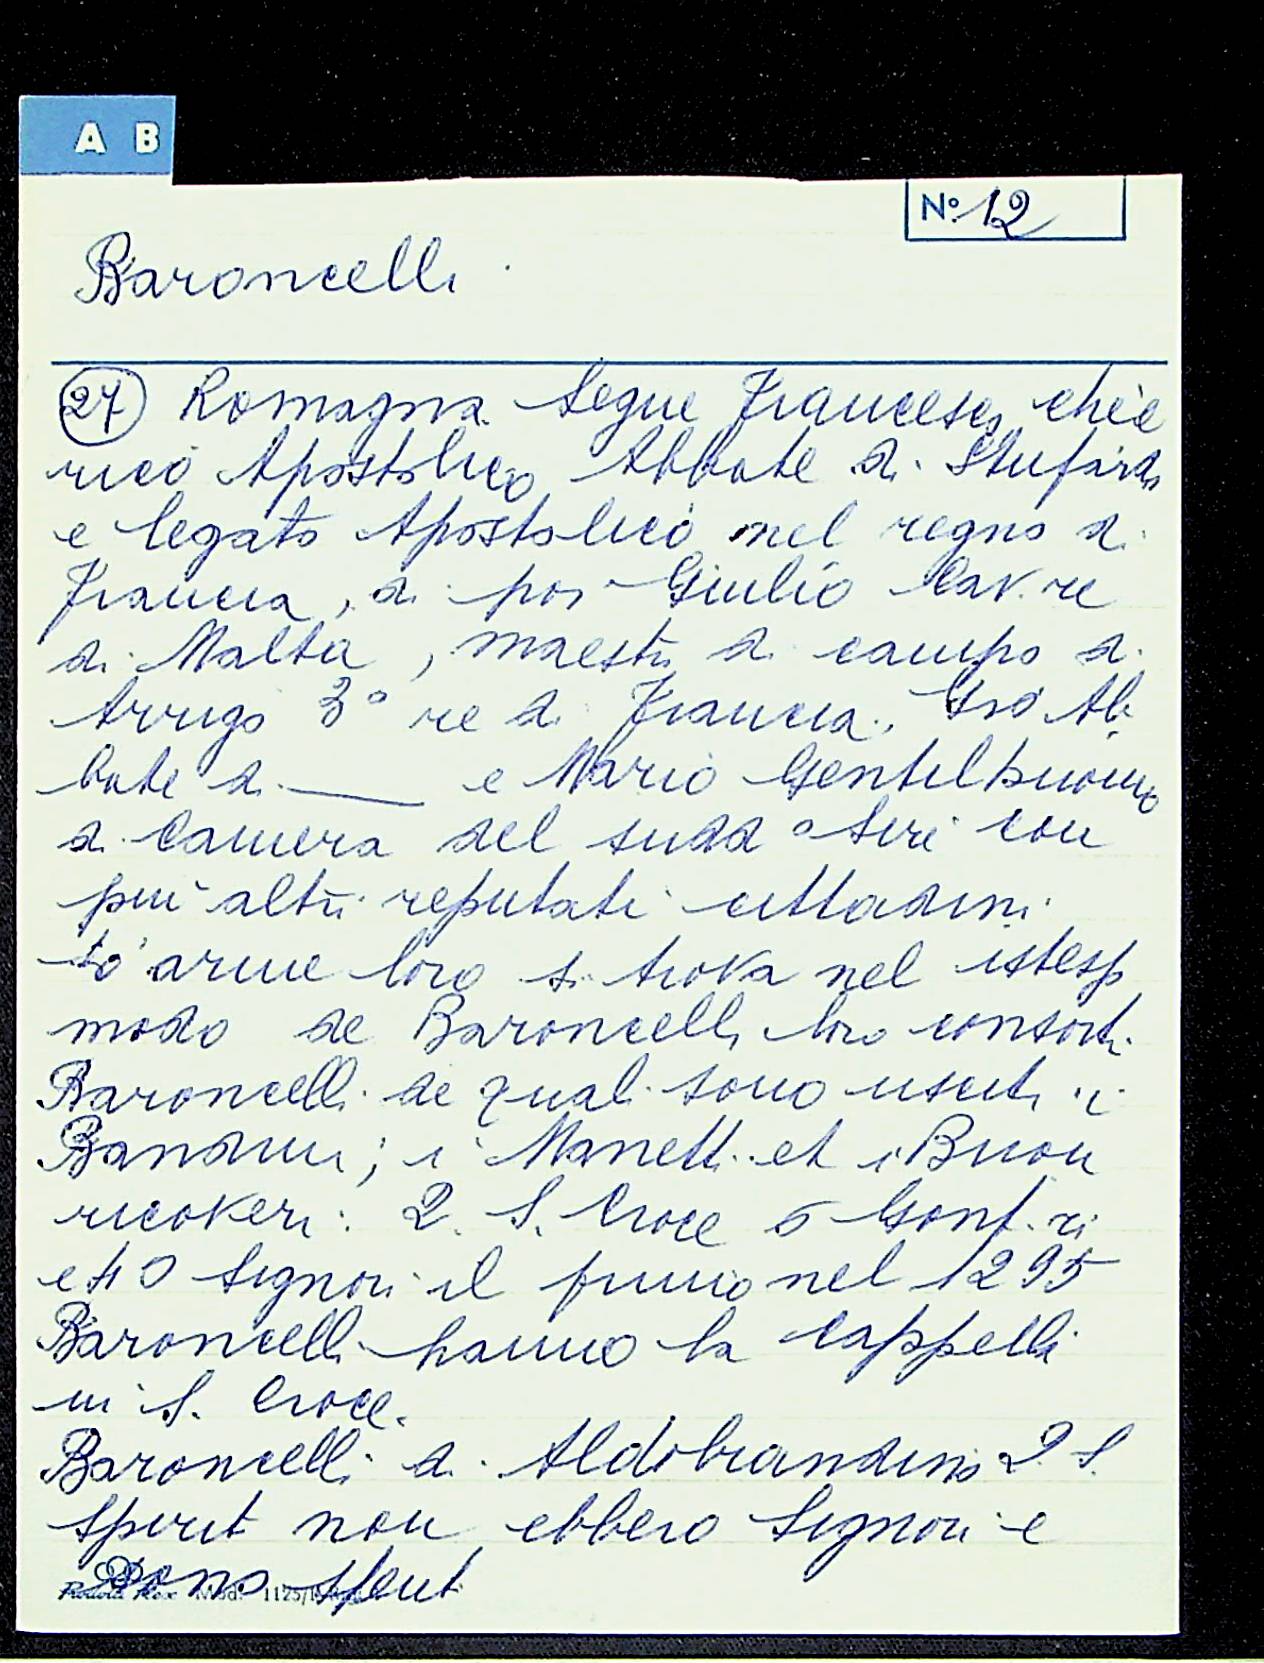 A B
No. 12
Baroncelli
(27) Romagna. Segue Francesco chie
rico Apostolico Abbate di
e legato Apostolico nel regno di
Francia, di poi Giulio Cav.re
di Malta, maestro di campo di
Arrigo 3° re di Francia. Gio Ab
bate di ____ e Mario Gentilhuomo
di Camera del sudd° Sire con
più altri reputati cittadini.
Lo arme loro si trova nel istesso
modo de Baroncelli loro consorti.
Baroncelli de quali sono usciti i
Bandini; i Manetti et i Buon
ricoveri: 2. S. Croce 5 Gonf.ri
e 40 Signori il primo nel 1295
Baroncelli hanno la cappella
in S. Croce.
Baroncelli di Aldobrandino 2. S.
Spirit non ebbero Signori e
sono spenti